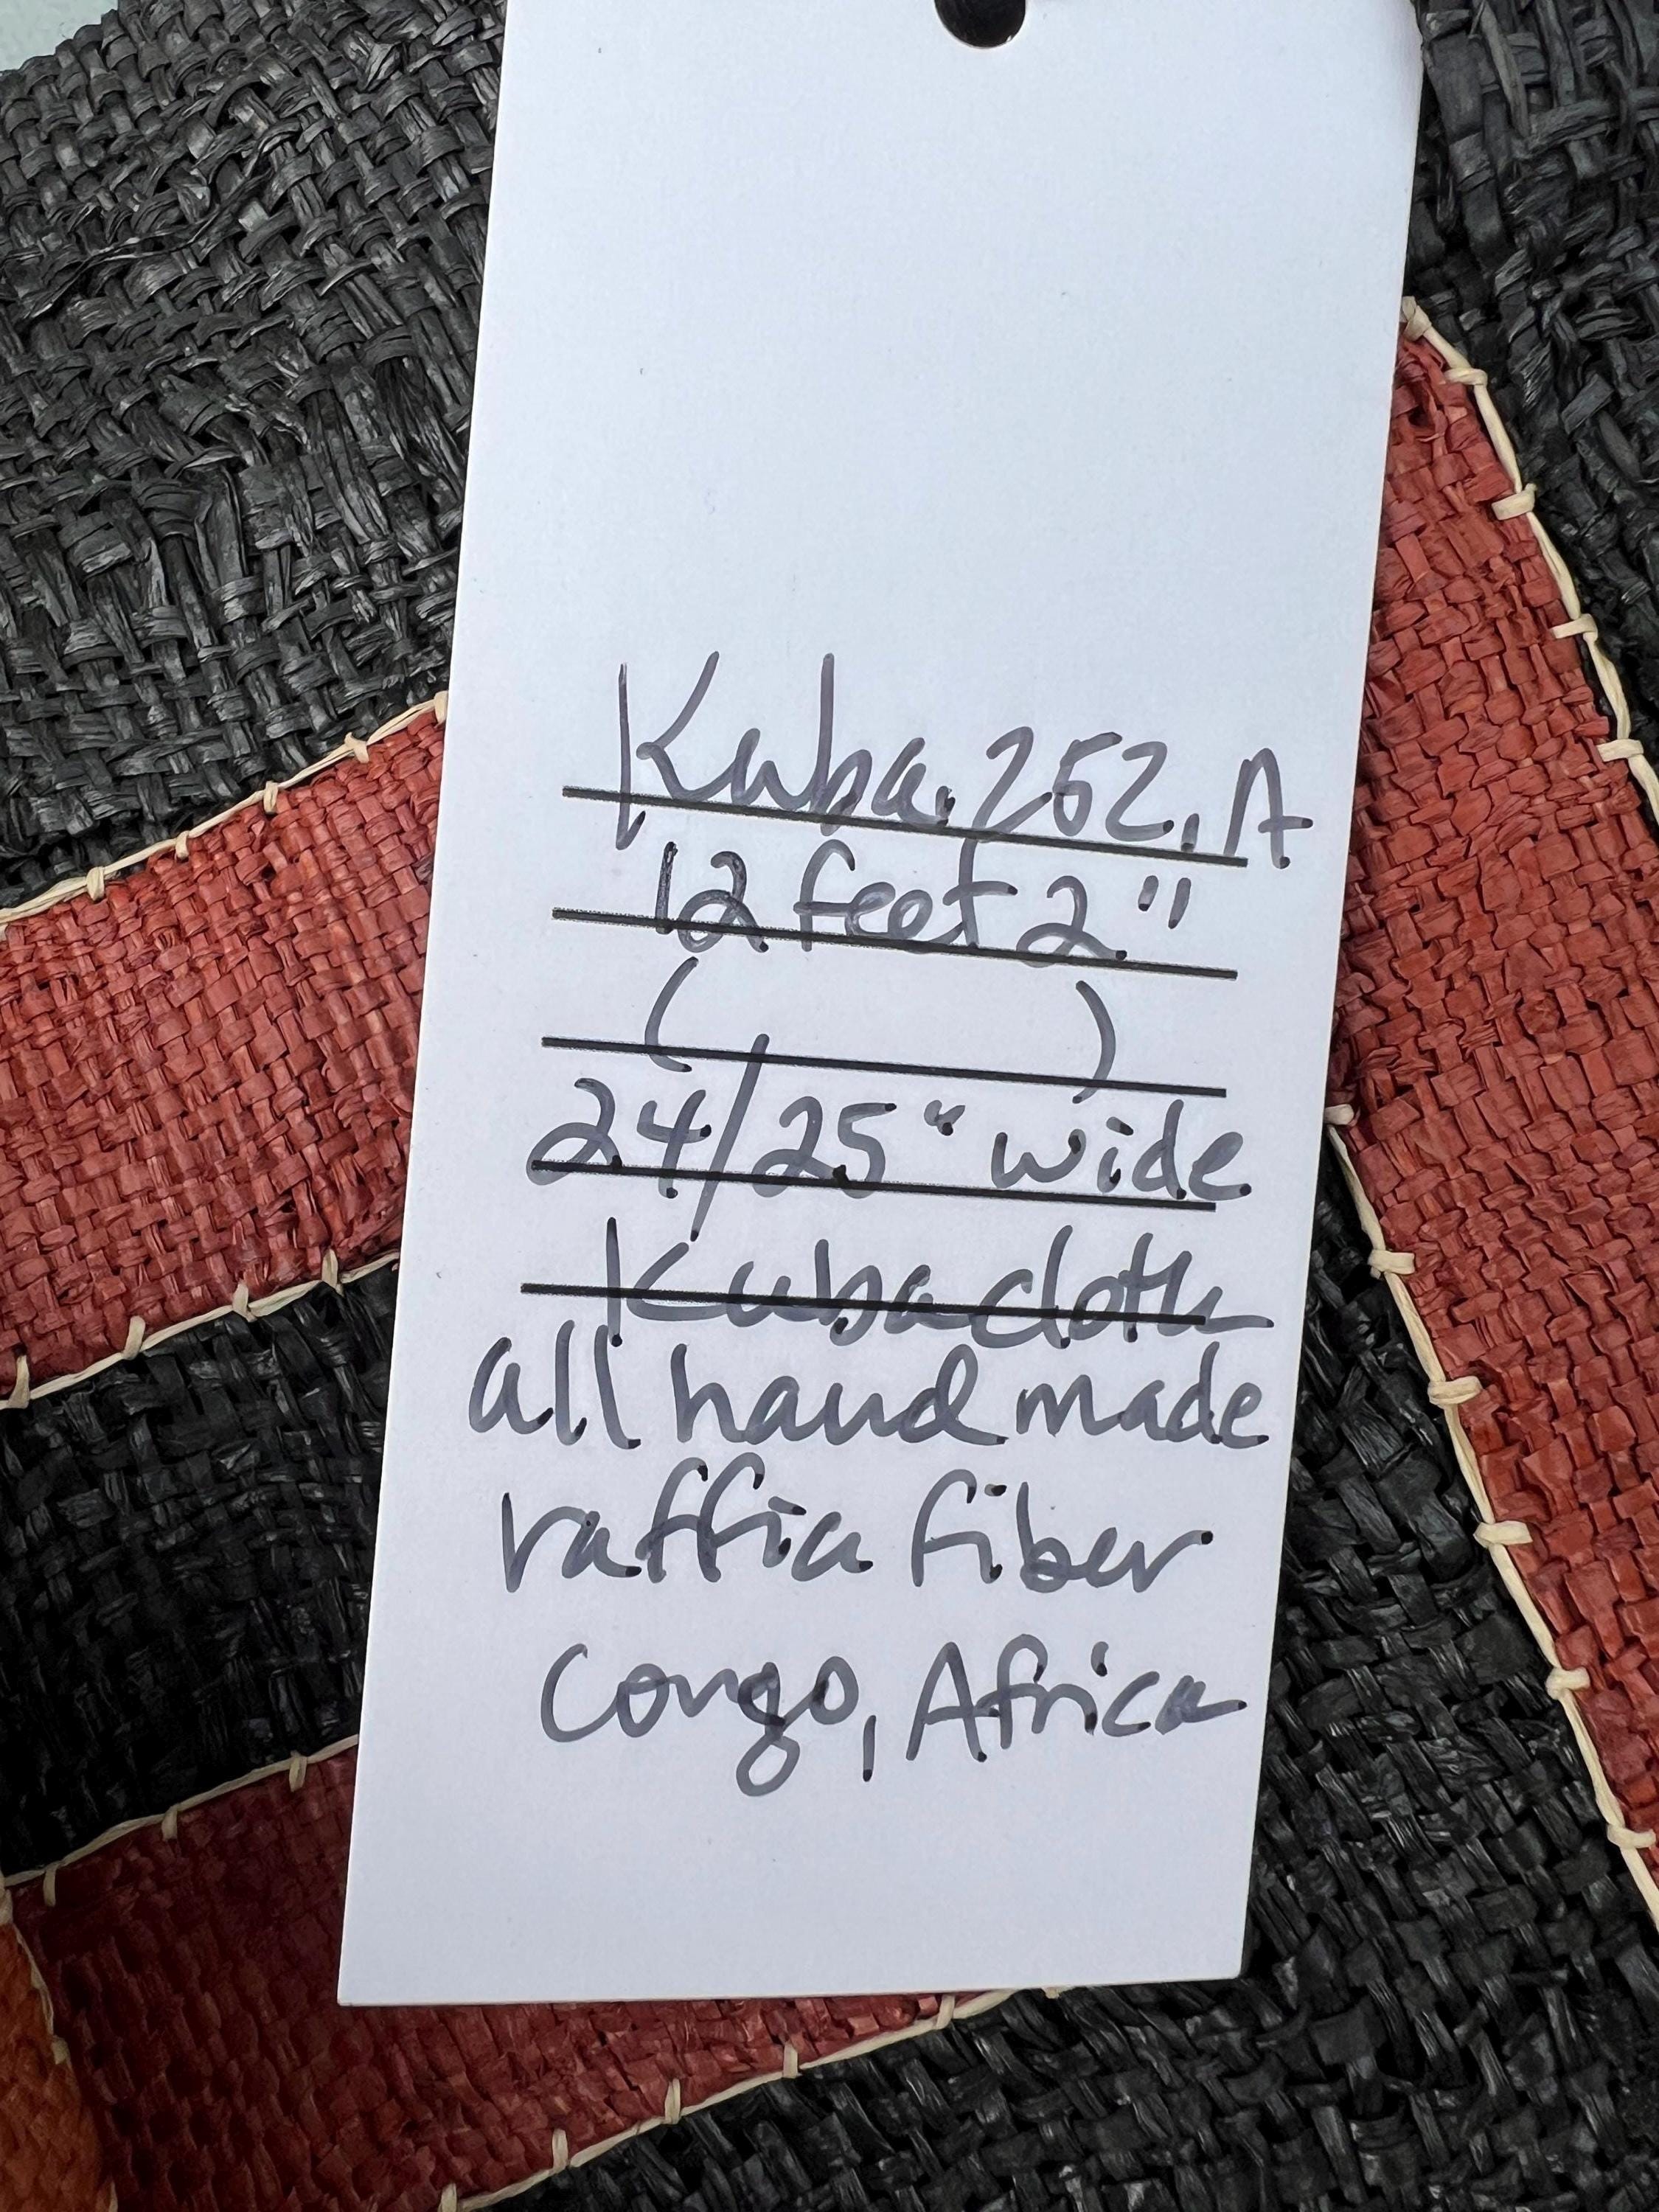 Kuba.252.A
12 feet 2"
(          )
24/25" wide
Kuba cloth
all hand made
raffia fiber
Congo, Africa